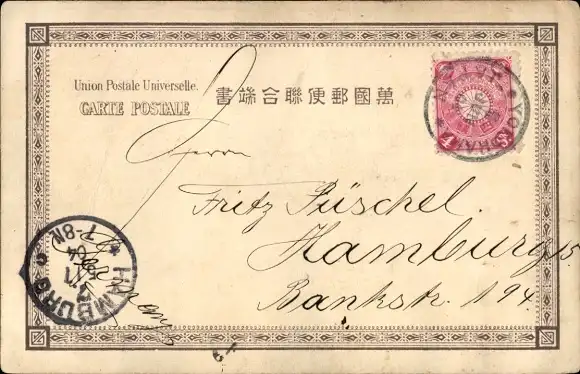 Union Postale Universelle.
CARTE POSTALE
書端合聯便郵國萬
4 Sn
YOKOHAMA
Herrn
Fritz Püschel.
Hamburg 15.
Bankstr. 194.
Germany
HAMBURG
04
7-8N.